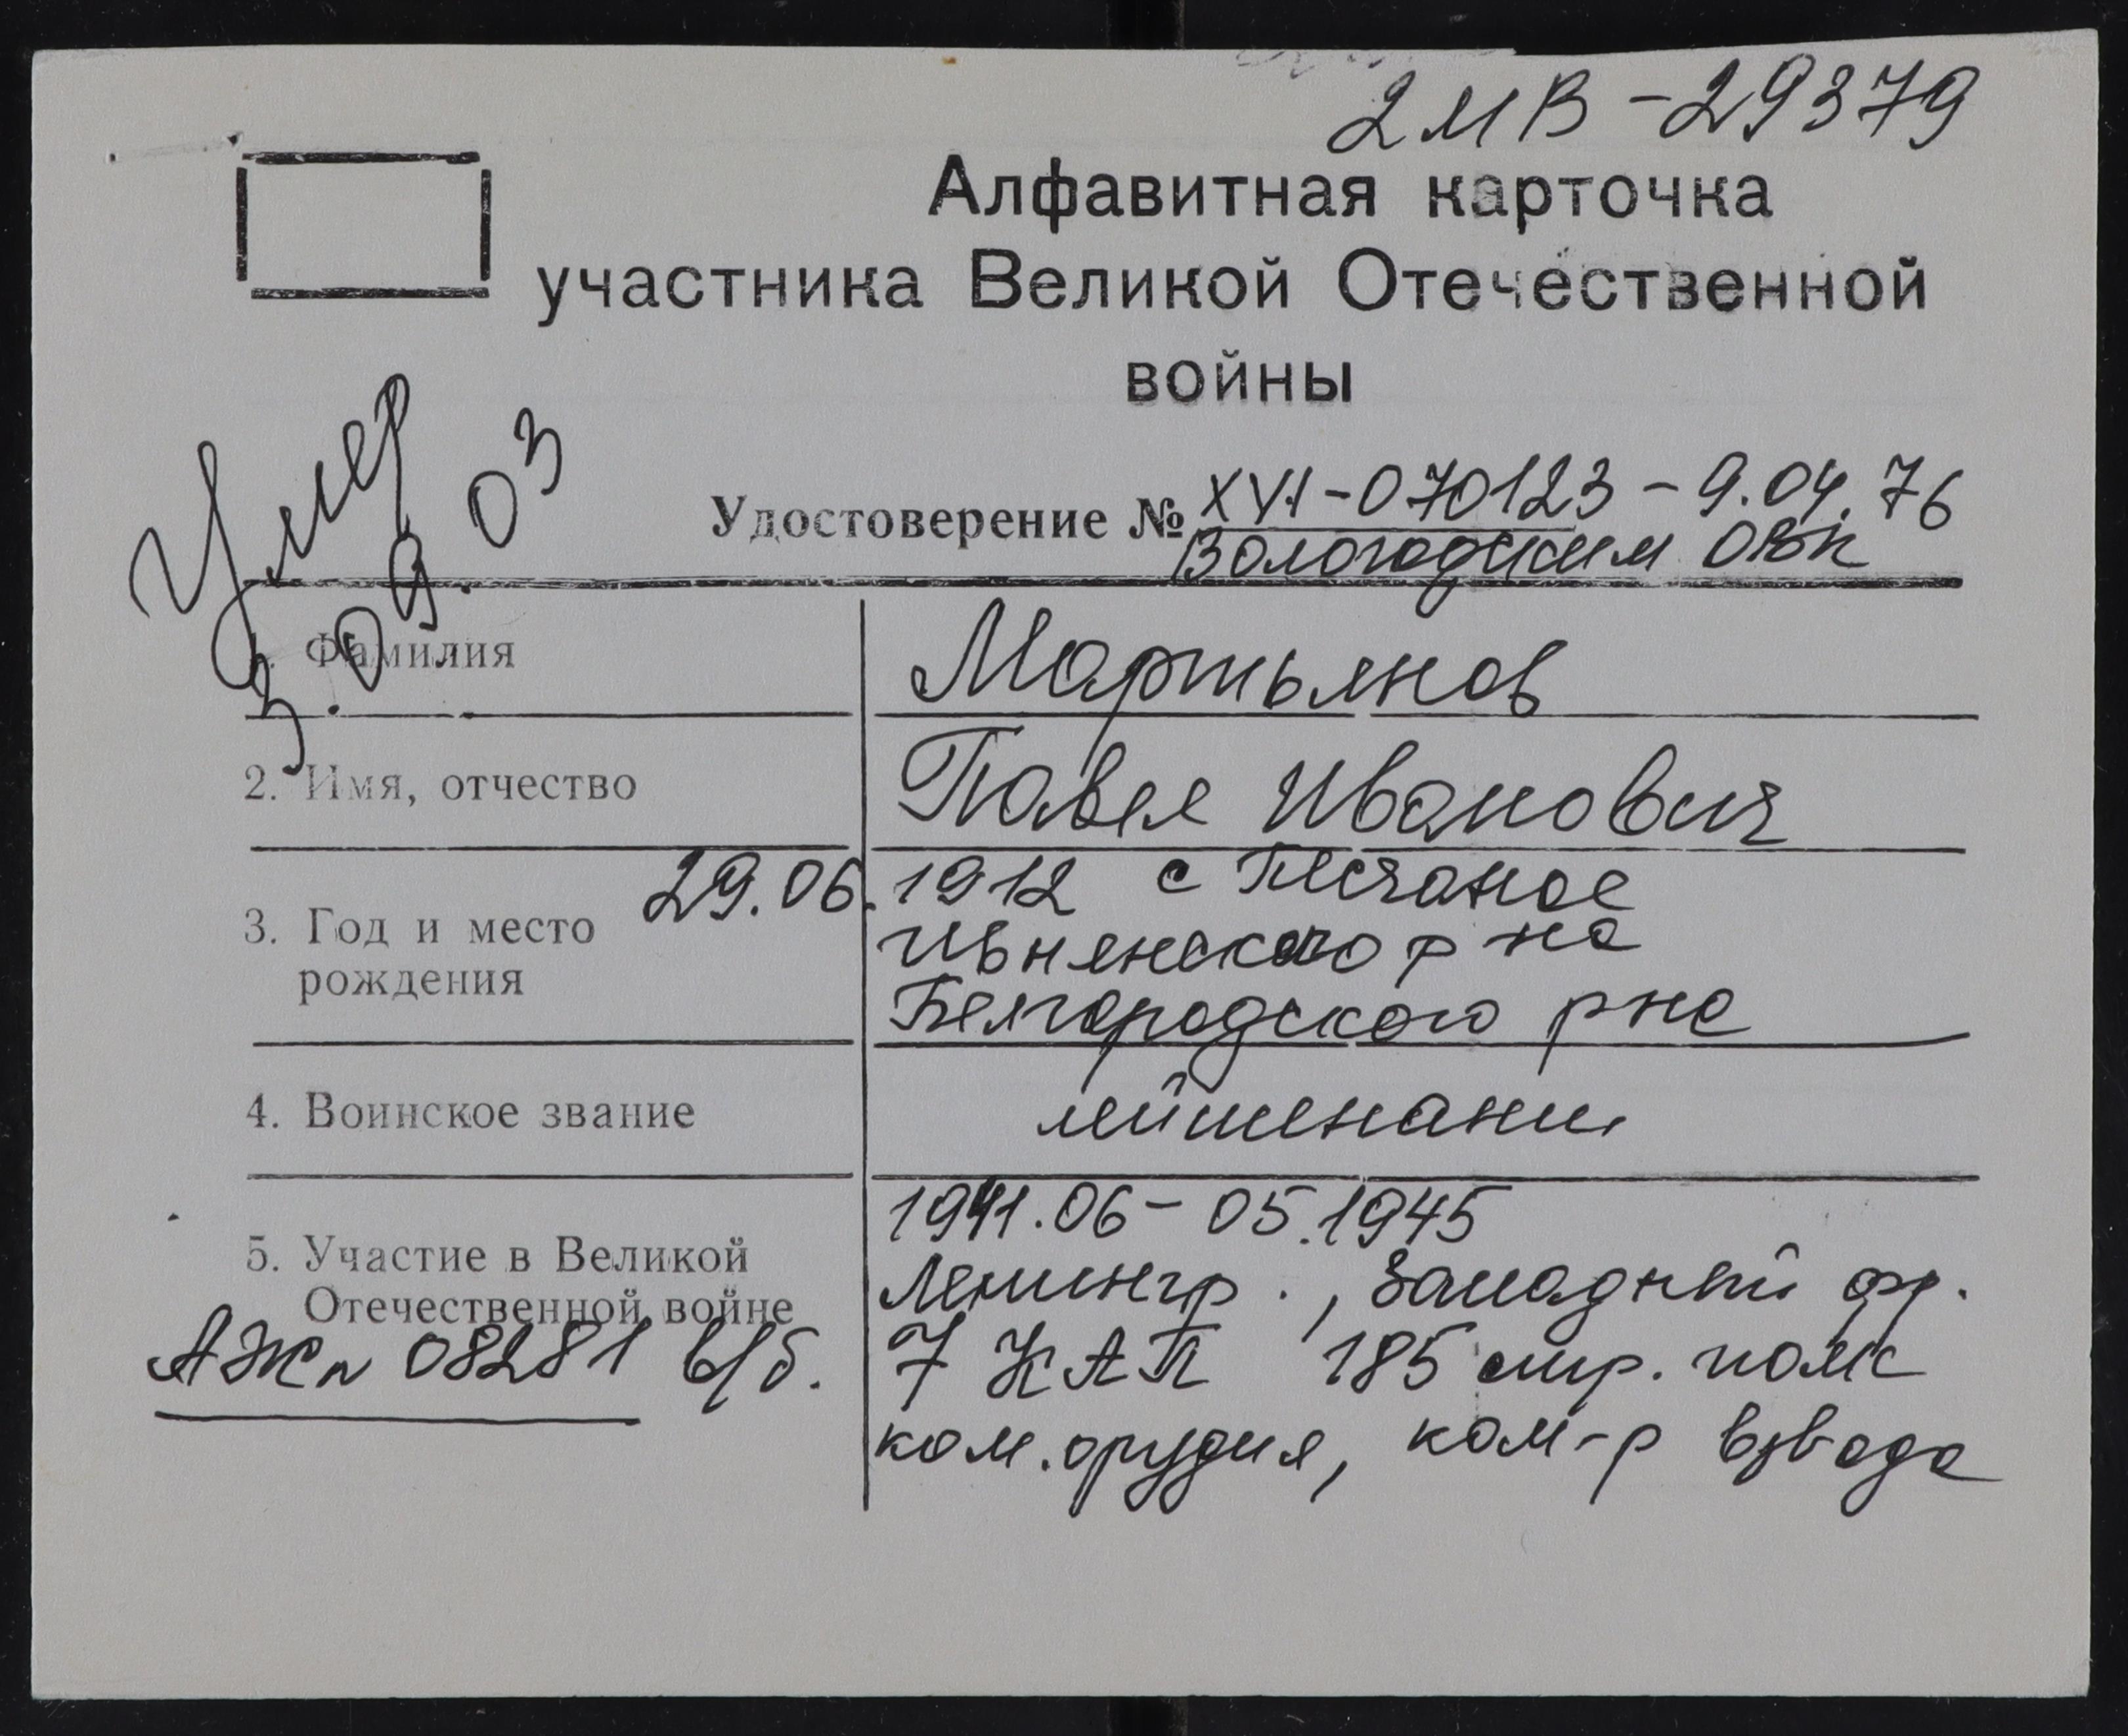 2МВ-29379
Алфавитная карточка
участника Великой Отечественной
войны
Умер
3.09.03
Удостоверение № XVI-070123-9.04.76
Вологодским ОВК
1. Фамилия
Мартьянов
2. Имя, отчество
Павел Иванович
3. Год и место
рождения
29.06.1912 с Песчаное
Ивнянского р на
Белгородского рна
4. Воинское звание
лейтенант
5. Участие в Великой
Отечественной войне
АЖ № 08281 в/б.
1941.06-05.1945
Ленингр., Западный фр.
7 КАП 185 стр. полк
ком. орудия, ком-р взвода